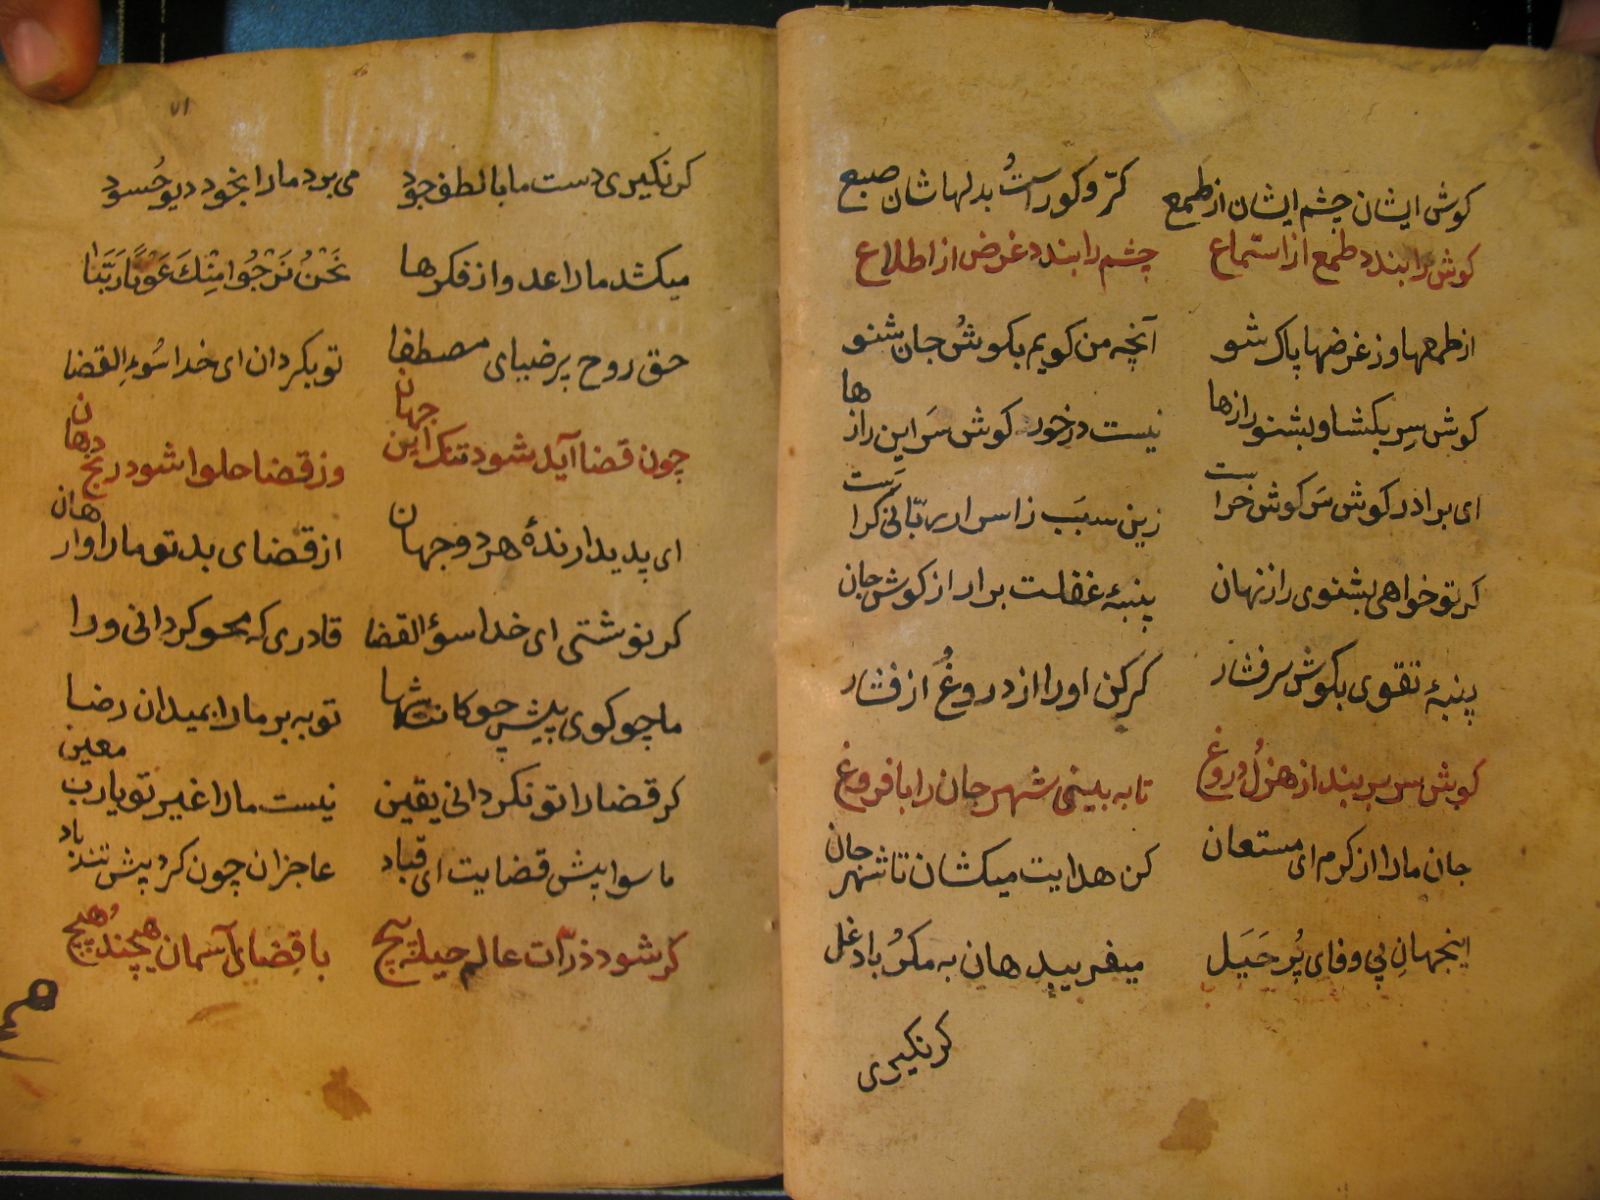 کوش ایشان چشم ایشان از طمع کرّ و کور است بدلهاشان صبع
کوش را بندد طمع از استماع چشم را بندد غرض از اطلاع
از طمعها وز غرضها پاک شو آنچه من کویم بکوش جان شنو
کوش سِر بکشا و بشنو رازها نیست در خور کوش سَر این رازها
ای برادر کوش سَر کوش خراست زین سبَب ز اسرار ربّانی کراست
کر تو خواهی بشنوی راز نهان پنبهٔ غفلت برار از کوش جان
پنبهٔ تقوی بکوش سر فشار کر کن او را از دروغُ از فشار
کوش سر بربند از هزلُ دروغ تا به بینی شهر جان را با فروغ
جان ما را از کرم ای مستعان کن هدایت میکشان تا شهر جان
اینجهانِ بی وفای پُر حَیَل میفریبد هان به مکرُ با دغل
کر نکیری
۷۱
کر نکیری دست ما با لطف جود می برد ما را بخود دیو حُسود
میکشد ما را عدو از فکرها نَحْنُ نَرْجُوا مِنْكَ عَوْنًا رَبَّنا
حق روح پر ضیای مصطفا تو بکردان ای خدا سُوءِ القضا
چون قضا آید شود تنک این جهان وز قضا حلوا شود رنج دهان
ای پدیدارندهٔ هر دو جهان از قضای بد تو ما را وارهان
کر نوشتی ای خدا سوءُ القضا قادری که محو کردانی ورا
ما چو کوی پیش چوکانت شها تو به بر ما را بمیدان رضا
کر قضا را تو نکردانی یقین نیست ما را غیر تو یارب معین
ما سوا پیش قضایت ای قباد عاجزان چون کرد پیش تندباد
کر شود ذرّات عالم حیله پیچ با قضای آسمان هیچند هُیچ